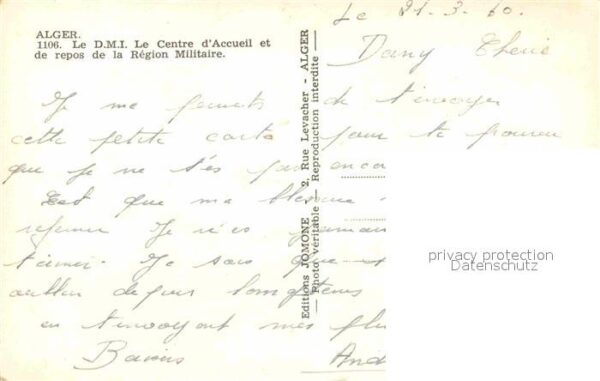 ALGER.
1106. Le D.M.I. Le Centre d'Accueil et
de repos de la Région Militaire.
Le 21-3-60.
Dany Cherie
Je me permets de t'envoyer
cette petite carte pour te prouver
que je ne t'es pas
que ma
refermer Je n'es
t'aimer. Je sais que
oublier depuis longtemps
en t'envoyant mes
Baisers
And
Editions JOMONE - 2, Rue Levacher - ALGER
Photo véritable — Reproduction interdite
privacy protection
Datenschutz